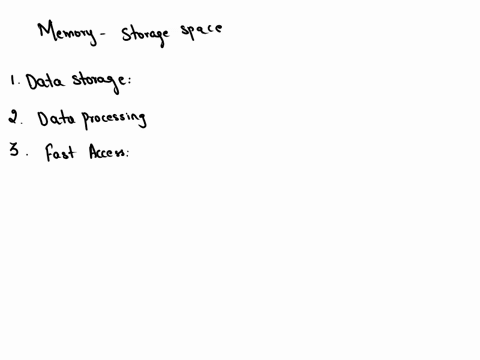 Memory - Storage space
1. Data Storage:
2. Data processing
3. Fast Access: